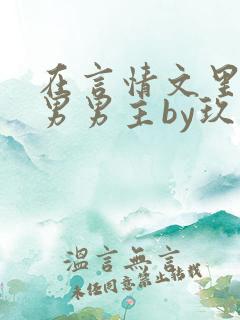 在言情文里
男男主by玖
溫言無言
未经同意禁止转载